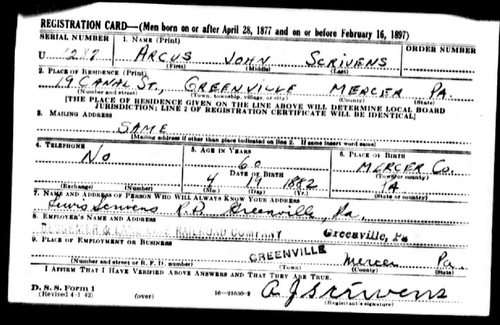 REGISTRATION CARD—(Men born on or after April 28, 1877 and on or before February 16, 1897)
SERIAL NUMBER 1. NAME (Print) ORDER NUMBER
U 1287 ARCUS JOHN SCRIVENS
(First) (Middle) (Last)
2. PLACE OF RESIDENCE (Print)
19 CANAL ST., GREENVILLE MERCER PA.
(Number and street) (Town, township, village, or city) (County) (State)
[THE PLACE OF RESIDENCE GIVEN ON THE LINE ABOVE WILL DETERMINE LOCAL BOARD
JURISDICTION; LINE 2 OF REGISTRATION CERTIFICATE WILL BE IDENTICAL]
3. MAILING ADDRESS
SAME
[Mailing address if other than place indicated on line 2. If same insert word same]
4. TELEPHONE 5. AGE IN YEARS 6. PLACE OF BIRTH
NO 60 MERCER CO.
DATE OF BIRTH (Town or county)
4 17 1882 PA
(Exchange) (Number) (Mo.) (Day) (Yr.) (State or country)
7. NAME AND ADDRESS OF PERSON WHO WILL ALWAYS KNOW YOUR ADDRESS
Lewis Scrivens R.D. Greenville Pa.
8. EMPLOYER'S NAME AND ADDRESS
BESSEMER & LAKE ERIE RAILROAD COMPANY Greenville, Pa
9. PLACE OF EMPLOYMENT OR BUSINESS
GREENVILLE Mercer Pa.
(Number and street or R. F. D. number) (Town) (County) (State)
I AFFIRM THAT I HAVE VERIFIED ABOVE ANSWERS AND THAT THEY ARE TRUE.
D. S. S. Form 1
(Revised 4-1-42) (over) 16—21630-2 A J Scrivens
(Registrant's signature)